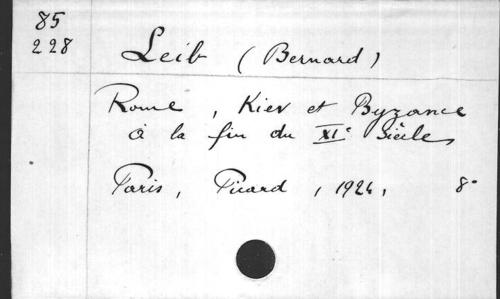 85
228
Leib (Bernard)
Rome, Kiev et Byzance
à la fin du XIe Siècle,
Paris, Picard, 1924, 8°